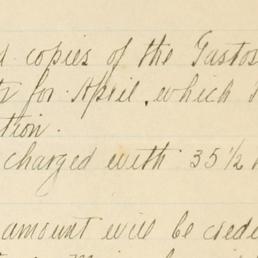 copies of the Gastos
for April, which
tion.
charged with 35 1/2
amount will be credi